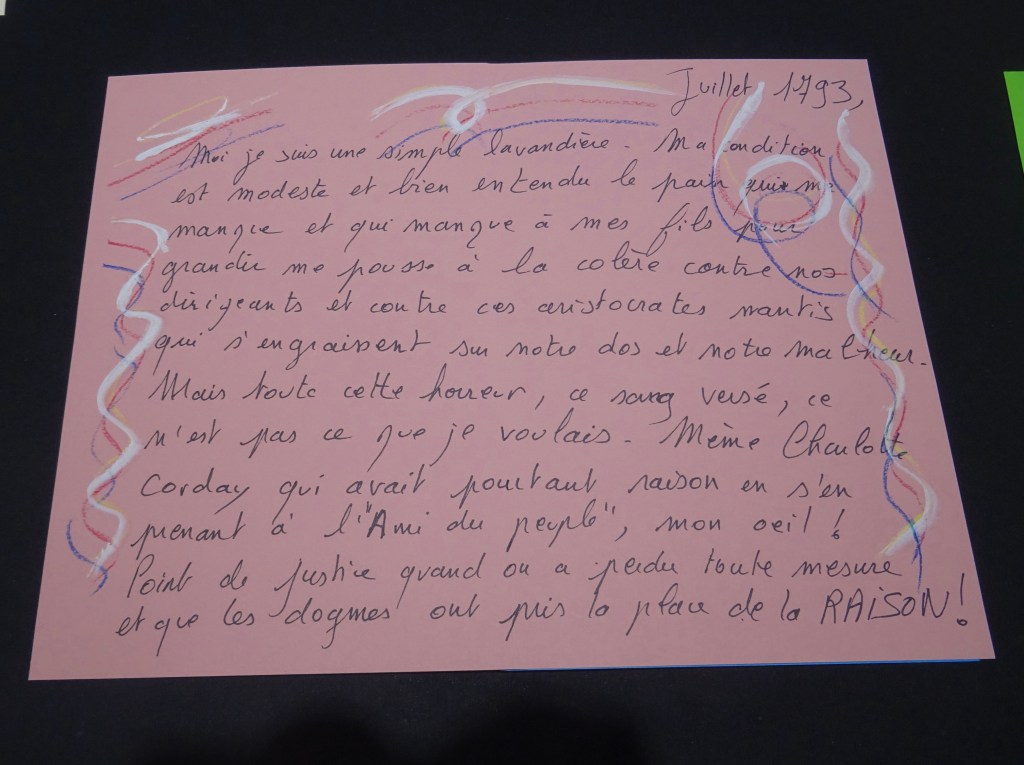 Juillet 1793,
Moi je suis une simple lavandière. Ma condition
est modeste et bien entendu le pain qui me
manque et qui manque à mes fils pour
grandir me pousse à la colère contre nos
dirigeants et contre ces aristocrates nantis
qui s'engraissent sur notre dos et notre malheur.
Mais toute cette horreur, ce sang versé, ce
n'est pas ce que je voulais. Même Charlotte
Corday qui avait pourtant raison en s'en
prenant à l'"Ami du peuple", mon oeil !
Point de justice quand on a perdu toute mesure
et que les dogmes ont pris la place de la RAISON !